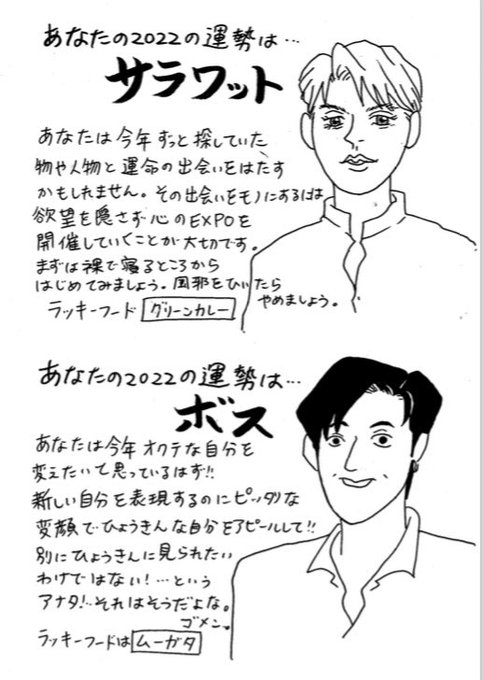 あなたの2022の運勢は…
サラワット
あなたは今年ずっと探していた、
物や人物と運命の出会いをはたす
かもしれません。その出会いをモノにするには
欲望を隠さず心のEXPOを
開催していくことが大切です。
まずは裸で寝るところから
はじめてみましょう。風邪をひいたら
やめましょう。
ラッキーフード グリーンカレー
あなたの2022の運勢は…
ボス
あなたは今年オクテな自分を
変えたいて思っているはず!!
新しい自分を表現するのにピッタリな
変顔でひょうきんな自分をアピールして!!
別にひょうきんに見られたい
わけではない!…という
アナタ!…それはそうだよな。
ゴメン。
ラッキーフードは ムーガタ